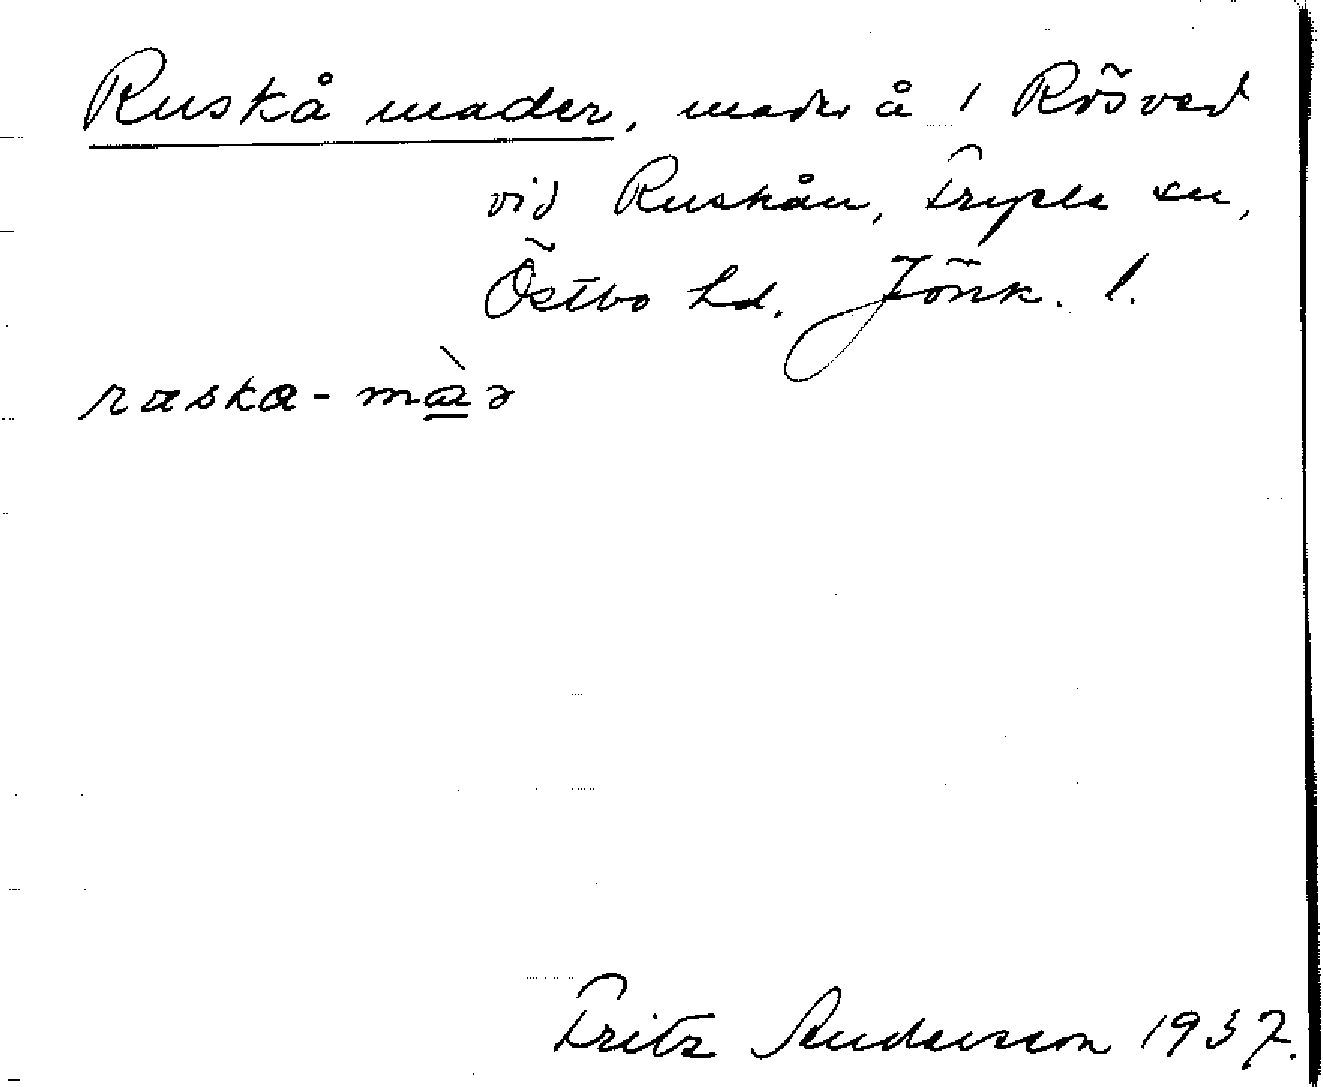 Ruskå mader, mader å 1 Rösved
vid Ruskån, Fryele sn,
Östbo hd. Jönk. l.
ruska-màr
Fritz Andersson 1937.